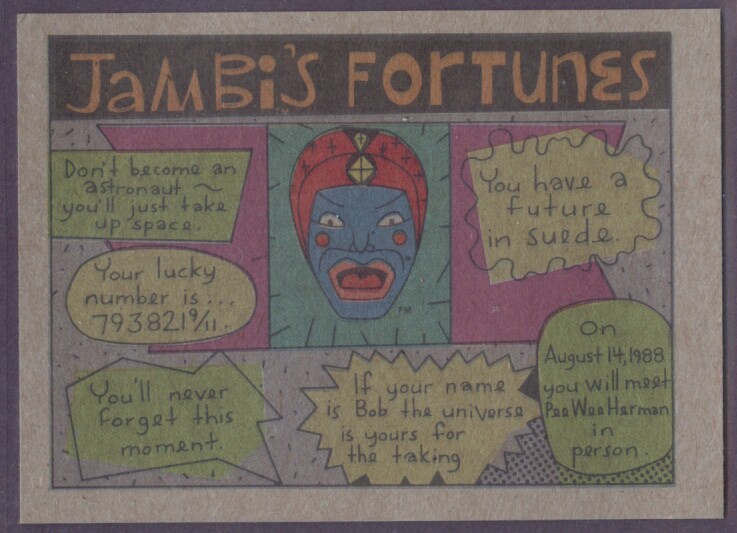 JAMBi'S FORTUNES
Don't become an
astronaut ~
you'll just take
up space.
You have a
future
in suede.
Your lucky
number is...
793821 9/11.
TM
On
August 14, 1988
you will meet
Pee Wee Herman
in
person.
You'll never
forget this
moment.
If your name
is Bob the universe
is yours for
the taking